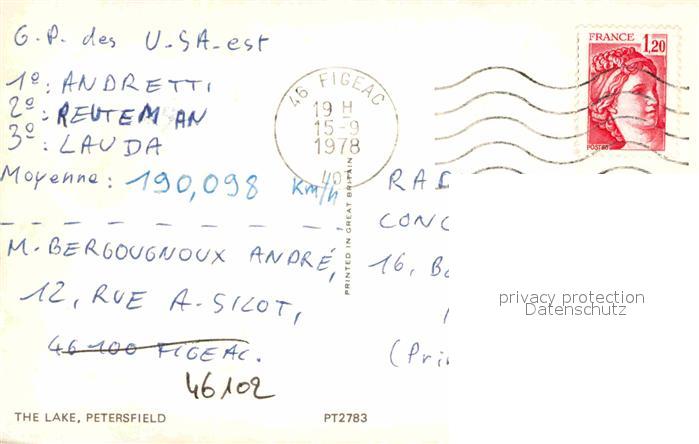 G.P. des U-SA-est
1º: ANDRETTI
2º: REUTEMAN
3º: LAUDA
Moyenne: 190,098 Km/h
M. BERGOUGNOUX ANDRÉ,
12, RUE A-SILOT,
46100 FIGEAC.
46102
THE LAKE, PETERSFIELD
46 FIGEAC
19 H
15-9
1978
FRANCE 1,20
POSTES
PRINTED IN GREAT BRITAIN
RAD
CONC
16, B
(Pri
privacy protection
Datenschutz
PT2783